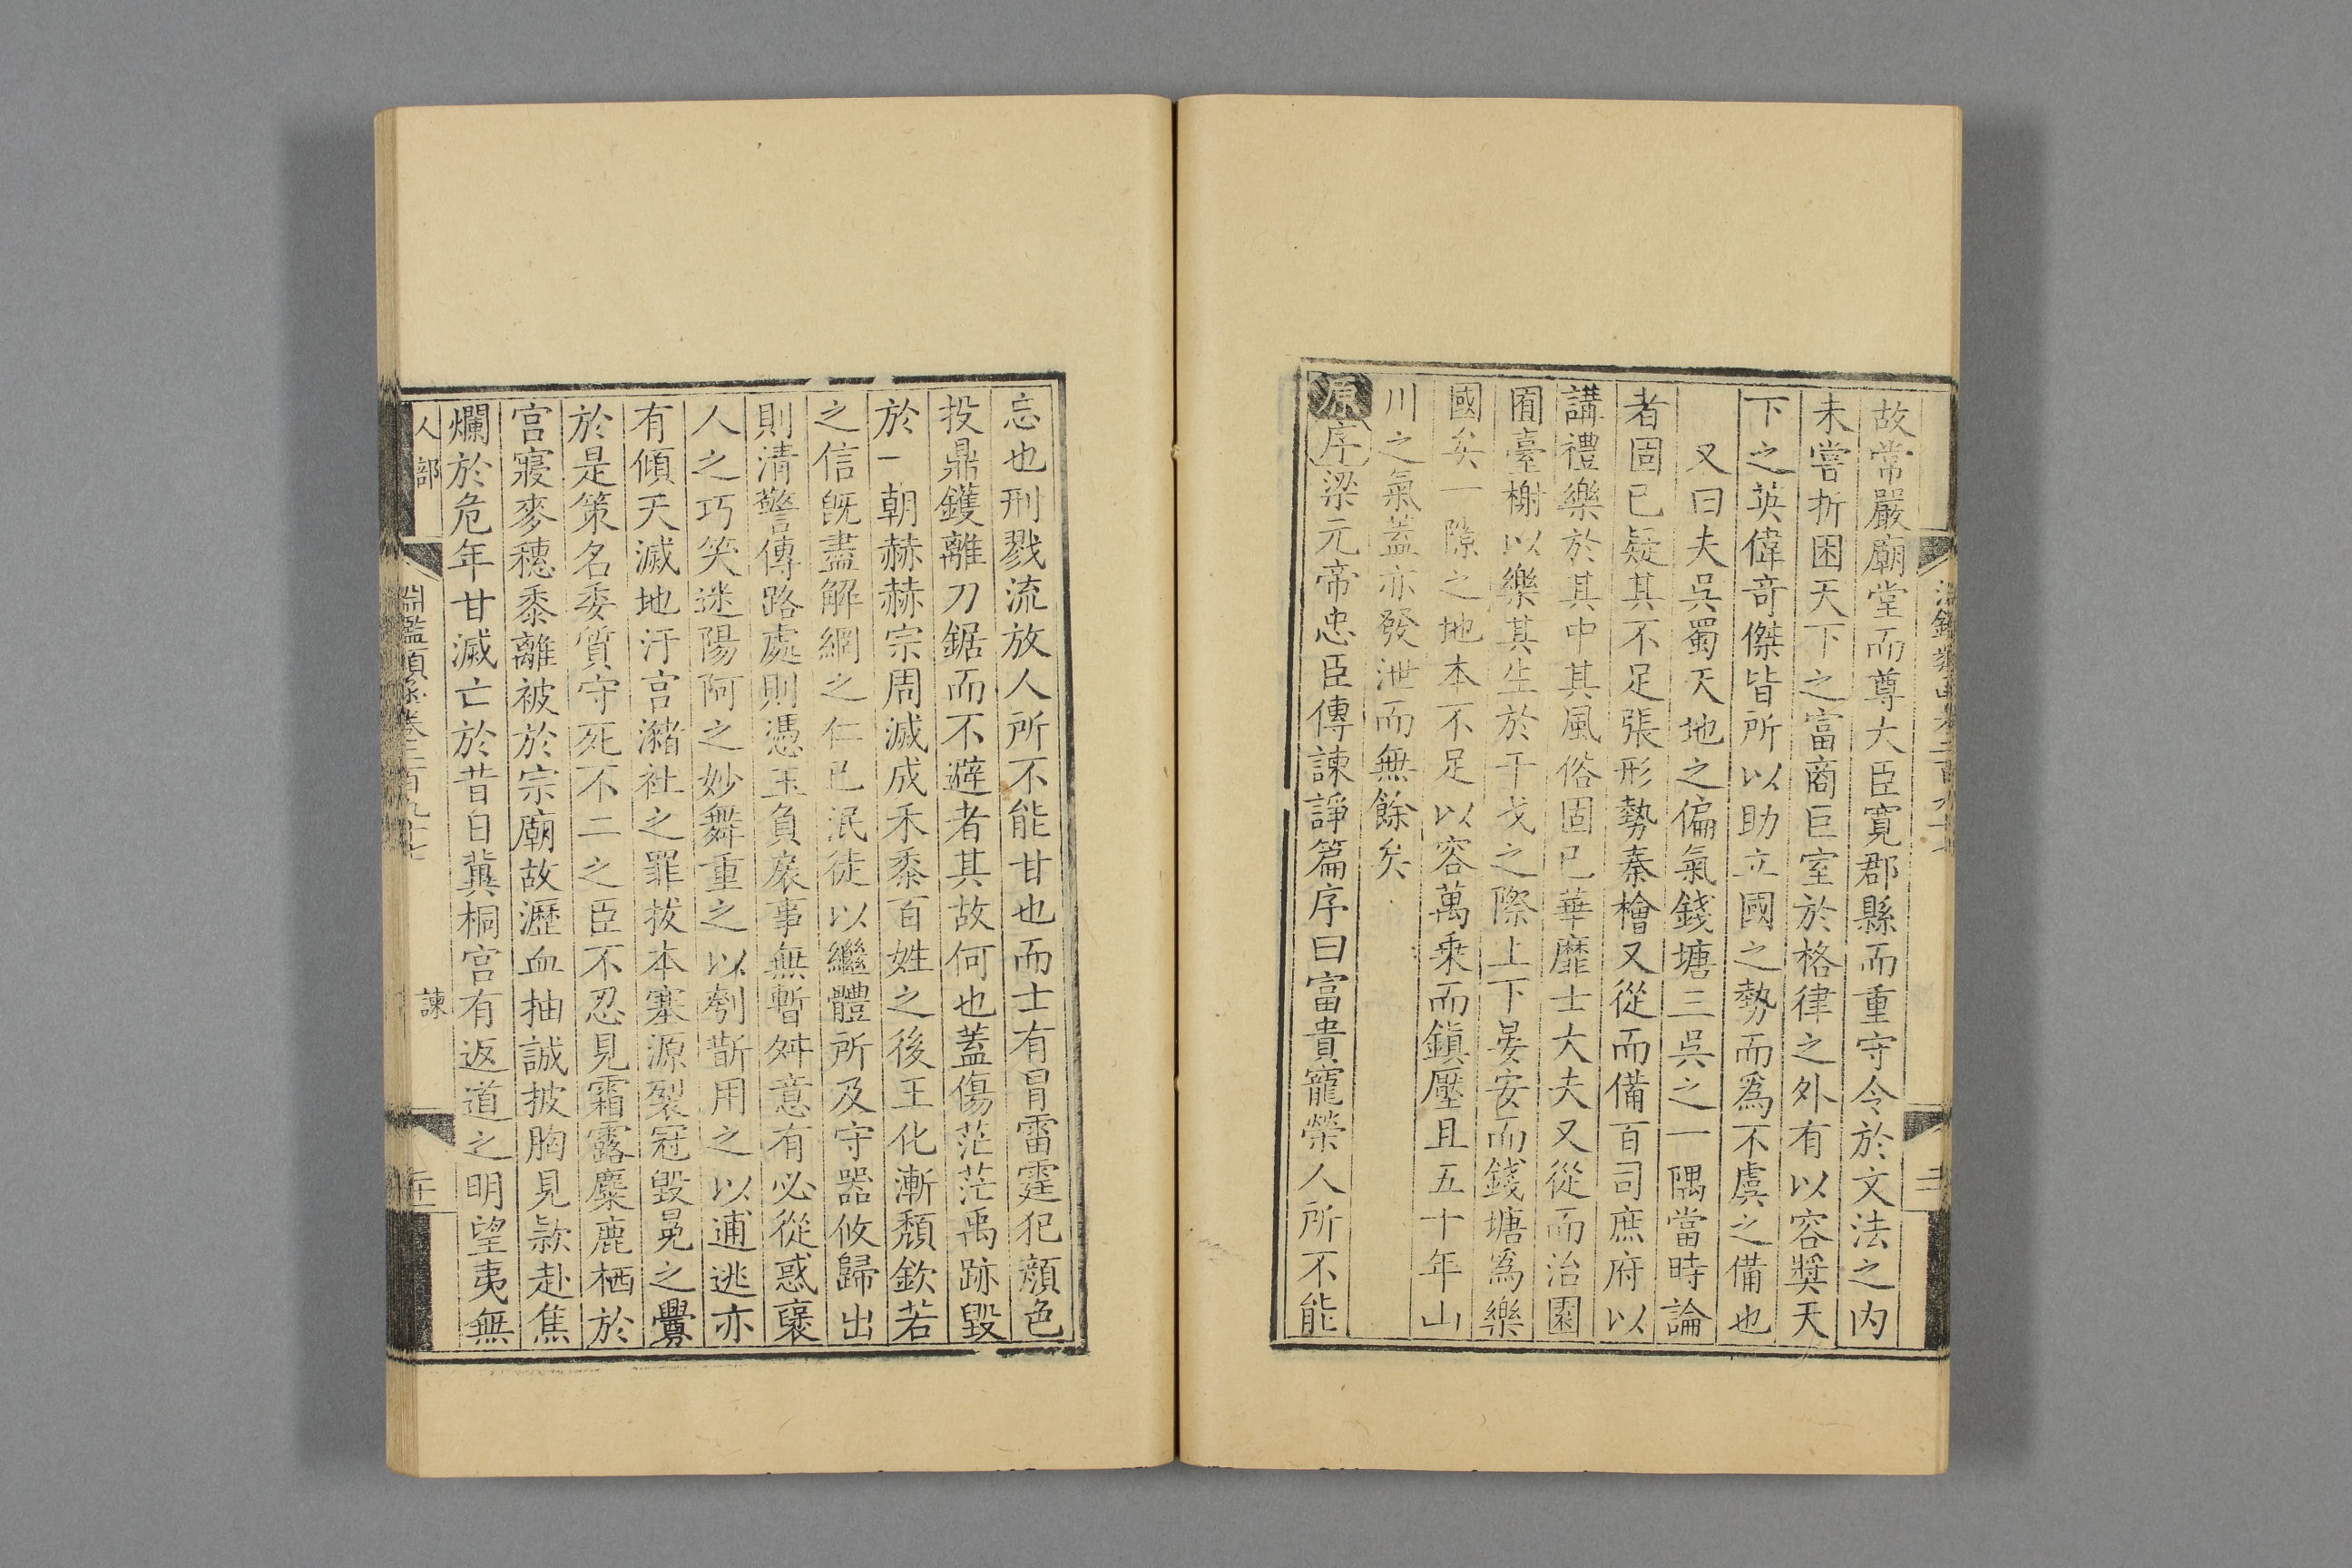 故常嚴廟堂而尊大臣寬郡縣而重守令於文法之内
未嘗折困天下之富商巨室於格律之外有以容奬天
下之英偉奇傑皆所以助立國之勢而爲不虞之備也
又曰夫吳蜀天地之偏氣錢塘三吳之一隅當時論
者固已疑其不足張形勢秦檜又從而備百司庶府以
講禮樂於其中其風俗固已華靡士大夫又從而治園
囿臺榭以樂其生於干戈之際上下晏安而錢塘爲樂
國矣一隙之地本不足以容萬乗而鎭壓且五十年山
川之氣蓋亦發泄而無餘矣
原序梁元帝忠臣傳諫諍篇序曰富貴寵榮人所不能
忘也刑戮流放人所不能甘也而士有冒雷霆犯顔色
投鼎鑊離刀鋸而不避者其故何也蓋傷茫茫禹跡毀
於一朝赫赫宗周滅成禾黍百姓之後王化漸頽欽若
之信旣盡解網之仁已泯徒以繼體所及守器攸歸出
則清警傳路處則憑玉負扆事無暫舛意有必從惑褒
人之巧笑迷陽阿之妙舞重之以刳斮用之以逋逃亦
有傾天滅地汙宫瀦社之罪拔本塞源裂冠毀冕之釁
於是策名委質守死不二之臣不忍見霜露麋鹿栖於
宫寢麥穗黍離被於宗廟故瀝血抽誠披胸見款赴焦
爛於危年甘滅亡於昔日冀桐宫有返道之明望夷無
人部
淵鑑類函卷二百九十七
諫